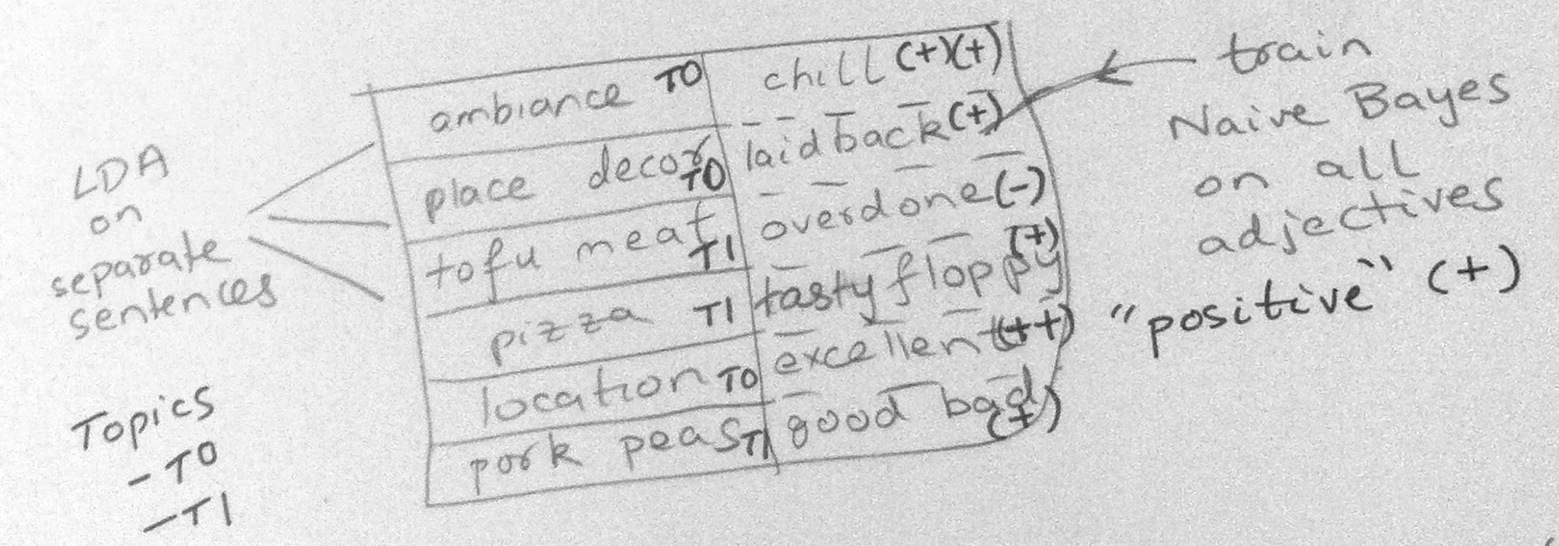 LDA
on
separate
sentences
Topics
- T0
- T1
ambiance T0 chill (+)(+)
place decor T0 laid back (+)
tofu meat T1 overdone (-)
pizza T1 tasty floppy (+)
location T0 excellent (++)
pork peas T1 good bad (+)
train
Naive Bayes
on all
adjectives
"positive" (+)